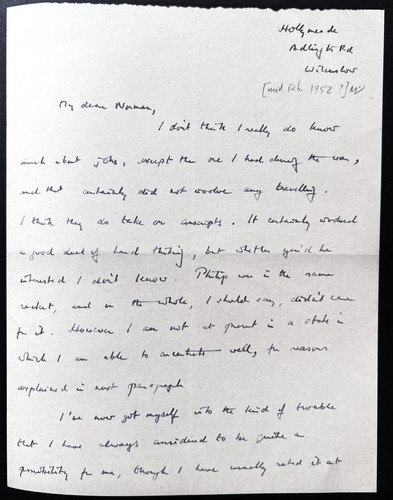 Hollymeade
Adlington Rd
Wilmslow
[mid Feb 1952?]
My dear Norman,
I don't think I really do know
much about jobs, except the one I had during the war,
and that certainly did not involve any travelling.
I think they do take on conscripts. It certainly involved
a good deal of hard thinking, but whether you'd be
interested I don't know. Philip was in the same
racket, and on the whole, I should say, didn't care
for it. However I am not at present in a state in
which I am able to concentrate well, for reasons
explained in next paragraph
I've now got myself into the kind of trouble
that I have always considered to be quite a
possibility for me, though I have usually rated it at